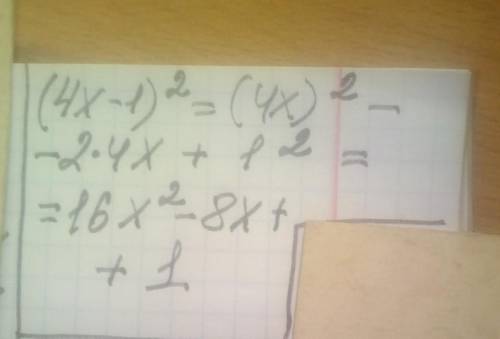 (4x-1)² = (4x)² -
-2·4x + 1² =
=16x²-8x+
+ 1